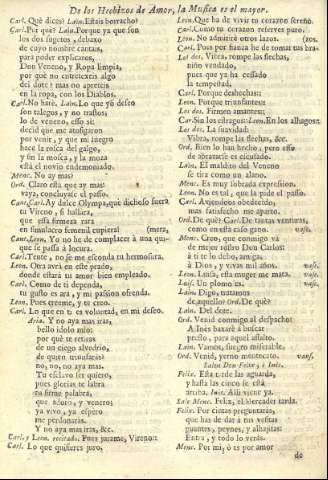 De los Hechizos de Amor, la Musica es el mayor.
Carl. Què dices? Lain. Estais borracho?
Carl. Por què? Lain. Porque ya que son
los dos sugetos, debaxo
de cuyo nombre cantais,
para poder explicaros,
Don Veneno, y Ropa limpia,
por què no entretexeis algo
del dote? mas no aprieten
en la ropa, con los Diablos.
Carl. No harè. Lain. Lo que yo deseo
son talegos, y no trastos:
lo de veneno, esso sì:
decid que me atosigaron
por venir, y que mi suegro
hace la rosca del galgo,
y sin la mosca, y la moza
està el novio endemoniado.
Menc. No ay mas?
Ord. Claro està que ay mas:
vaya, concluyase el passo.
Cant. Carl. Ay dulce Olympia, què dichoso fuera
tu Vireno, si hallàra,
que essa firmeza rara
en simulacro femenil cupiera!
Cant. Leon. Yo no he de complacer à una
que se passa à locura.
Carl. Tente, no se me esconda tu hermosura.
Leon. Otra avrà en este prado,
donde estarà tu amor bien empleado.
Carl. Como de ti dependa,
tu gusto es ara, y mi passion ofrenda.
Leon. Pues quereme, y te creo.
Carl. Lo que en ti es voluntad, en mi deseo.
Aria. Y no aya mas iras,
bello idolo mio:
por què te retiras
de un ciego alvedrio,
de quien triunfaste?
no, no, no aya mas.
Tu esclavo ser quiero,
pues glorias te labra
tu firme palabra,
que adoro, y veneros
ya vivo, ya espero
me perdonarás.
Y no aya mas iras, &c.
Carl. y Leon. recitado. Pues parame, Vireno:
Carl. Lo que quisieres puro,
Leon. Que ha de vivir tu corazon sereno.
Carl. Como tu corazon referves puro.
Leon. No admitirè otros lazos.
Carl. Pues por fianza he de tomar tus bra-
Los dos. Vibra, rompe las flechas,
niño vendado,
pues que ya ha cessado
la tempestad.
Carl. Porque deshechas:
Leon. Porque triunfantes:
Los dos. Firmen amantes:
Car. Sin los estragos: Leon. En los alhagos:
Los dos. La suavidad:
Vibra, rompe las flechas, &c.
Ord. Bien lo han hecho, pero esso
de abrazarse es escusado.
Lain. El maldito del Veneno
se tira como un alano.
Menc. Es muy sobrada expression.
Leon. No es tal, que la pide el passo.
Carl. Aviendoos obedecido,
mas satisfecho me aparto.
Ord. De què? Carl. De tantas venturas,
como en esta caso gano. vase.
Menc. Creo, que conmigo và
de mejor rostro Don Carlos:
à ti te lo debo, amiga,
à Dios, y vivas mil años. vase.
Leon. Luisa, esta muger me mata. vase.
Luis. Un plomo es. vase.
Lain. Digo, tratamos
de aquello? Ord. De què?
Lain. Del dote.
Ord. Venid conmigo al despacho:
A Inès baxarè à buscar
presto, para aquel assalto.
Lain. Vamos, suegro miserable.
Ord. Venid, yerno mentecato. vanse.
Salen Don Felix, è Inès.
Felix. Esta tarde las aguarda,
y hasta las cinco se està
arriba. Inès. Allì viene ya.
Sale Menc. Felix, el Mercader tarda.
Felix. Por ciertas preguntarias,
que has de dar à tus vesitas
guantes, peynes, y alhajitas:
Entra, y todo lo veràs.
Menc. Por mi, ò es por amor
de